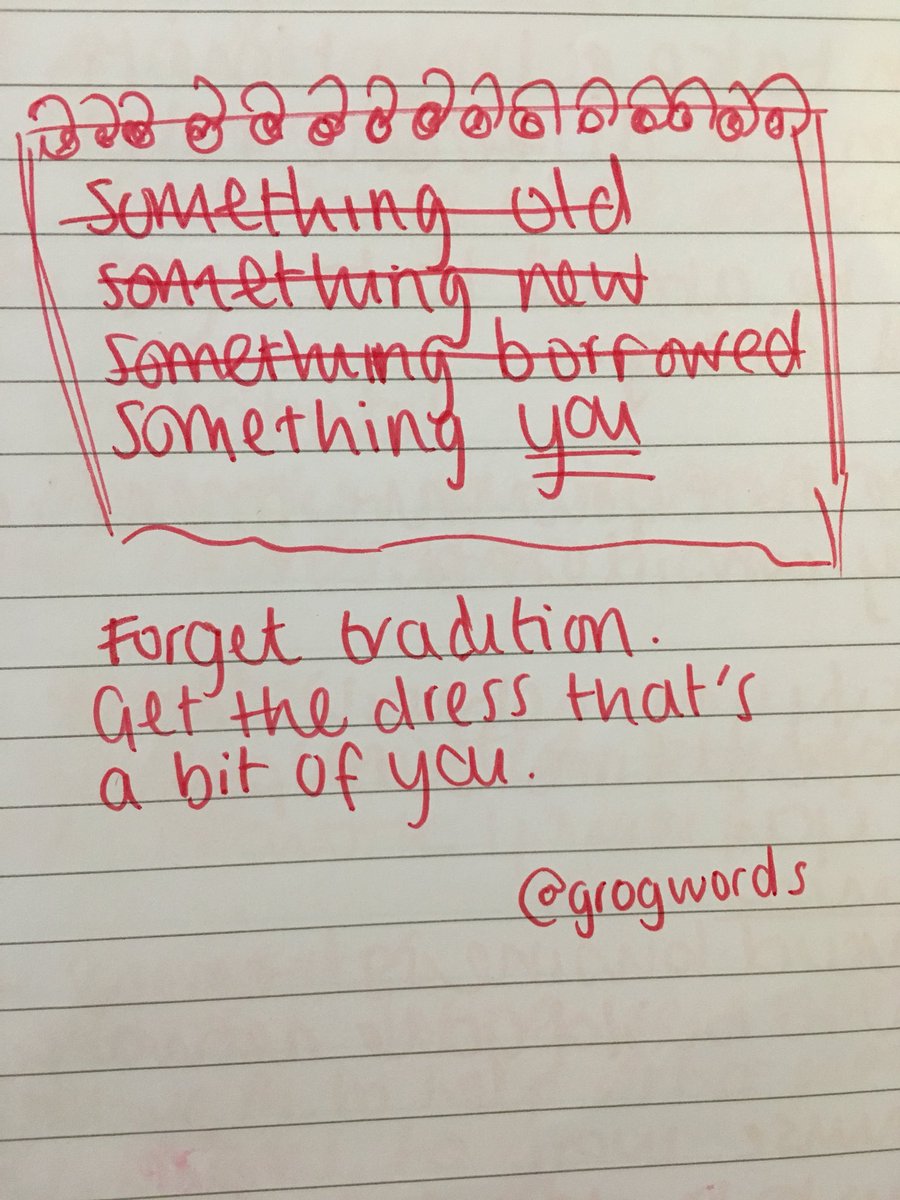 something old
something new
something borrowed
something you
Forget tradition.
Get the dress that's
a bit of you.
@grogwords